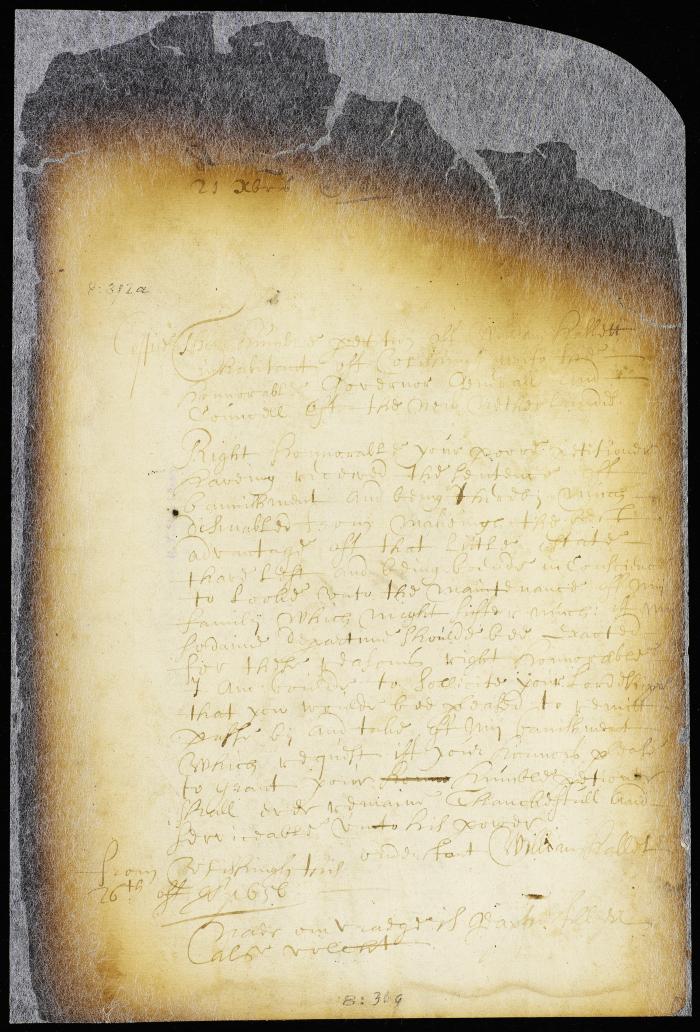 21 Xbr
8:312a
Coppie The humble petition off William Hallett
inhabitant off Vlissinge unto the
honnorable Governor Generall and
Councell off the New Netherlands
Right honnorable your poore petitioner
haveing receved the sentence off
bannishment and being thereby much
disinabled from makeing the best
advantage off that little state
thare left and being bounde in Conscience
to looke unto the maintenance off my
family which might suffer much if my
sodaine departure shoulde bee exacted
for these reasons right honnorable
I am boulde to sollicite your Lordships
that you woulde bee pleased to remitt
passe by and take off my bannishment
which request iff your honnors please
to grant your humble petioner
shall ever remaine thanckefull and
serviceable unto his power
William Hallett
from Vlissingh this
26th off 1656
8:369